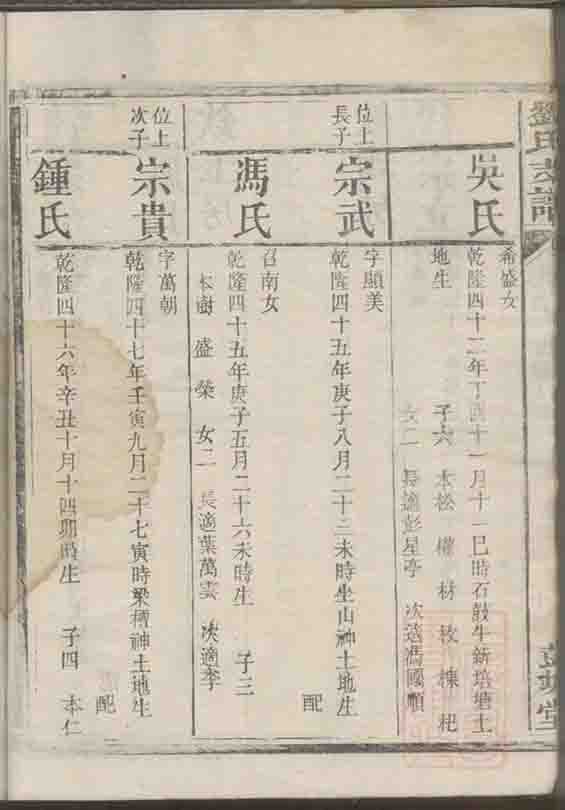 劉氏
吳氏
希盛女
乾隆四十二年丁酉十一月十一巳時石鼓生新培塘土
地生
子六 本松 權 材 枚 棟 杞
女二 長適彭星亭 次適馮國順
位上
長子
宗武
字顯美
乾隆四十五年庚子八月二十二未時坐山神土地生
配
馮氏
召南女
乾隆四十五年庚子五月二十六未時生 子三
本樹 盛 榮 女二 長適葉萬雲 次適李
位上
次子
宗貴
字萬朝
乾隆四十七年壬寅九月二十七寅時梁檀神土地生
配
鍾氏
乾隆四十六年辛丑十月十四卯時生 子四 本仁